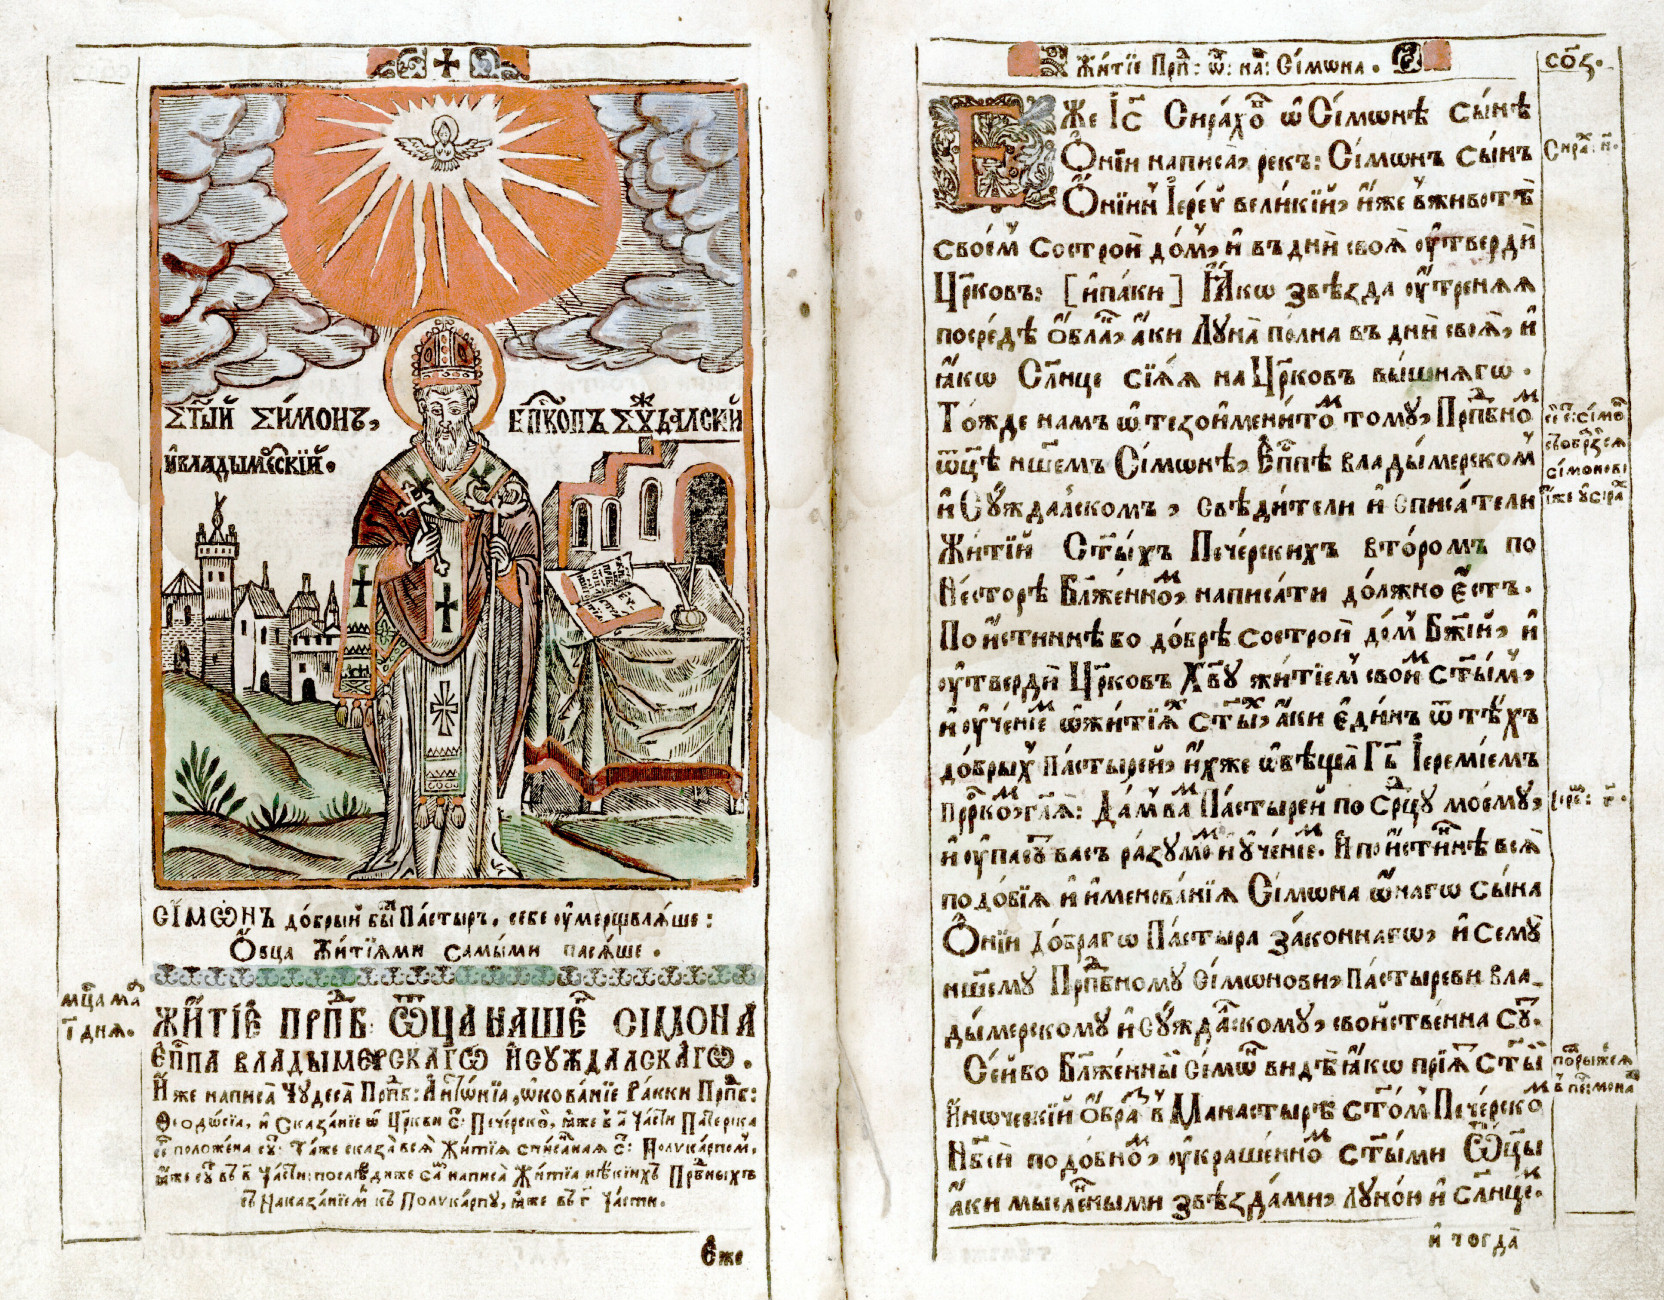 СТ҃ЫЙ СІМОНЪ, ЕП҃КОПЪ СУ́ЖДАЛСКІЙ
И ВЛАДЫМЕ҇РСКІЙ.
СІ́МѠНЪ до́брый бы̑ Па́стыръ, себе оу҆мерщвля́ше:
Ѻ҆вца Жи́тїами самы́ми пася́ше.
мц҃а маⷤ
і҃ дня.
ЖИ́ТІЕ ПРПⷣБ: ѾЦА НАШЕⷢ СІМОНА
ЕП҃ПА ВЛАДЫМЕРСКАГѠ И҆ СУЖДАЛСКАГѠ.
И҆́же написа̀ Чудеса̀ Прпⷣб: Анто́нїа, ѡ҆кова́нїе Ракки Прпⷣб:
Ѳеодо́сїа, и҆ Сказа́нїе ѡ҆ Цр҃кви с҃: Пече́рской, ꙗ҆́же в̾ а҃ ча́сти Патерика
положена су́: Та́же сказа̀ вся̀ Жи́тїя списа̑ная с҃: Полѵка́рпом̾,
ꙗ҆́же су́ въ в҃ ча́сти: послѣди́же са́м написа̀ Жи́тїа нѣ́кихъ Прпⷣбныхъ
съ Наказа́нїем̾ къ Полѵка́рпу, ꙗ҆́же въ г҃ ча́сти.
Е҆́же
Жи́тїе Прпⷣ: ѿ: на́: Сі́мѡна.
со҃ѕ.
Е҆́Же І҆с҃ Сира́хоⷡ ѡ҆ Сі́мѡнѣ сы́нѣ
Ѻ҆ні́и написа̀, рекъ: Сі́мѡнъ сы́нъ
Ѻ҆ні́инъ І҆ере́у вели́кїй, и҆́же в̾ животѣ̀
свое́м̾ состро́и до́м̾, и҆ въ днѝ своѧ̀ оу҆твердѝ
Цр҃ковъ: [и҆па́ки] Ꙗ҆́кѡ звѣзда оу҆́треняя
посре́дѣ ѻ҆́блакъ, а҆́ки Луна̀ по́лна въ днѝ своѧ̀, и҆
ꙗ҆́кѡ Сл҃нце сїя́я на Цр҃ковъ вы́шнягѡ.
То́жде нам ѡ҆ тезоимени́тоⷨ тому̀, Прпⷣбноⷨ
ѿцѣ̀ нш҃емъ Сі́мѡнѣ, Е҆п҃пѣ влады́мерскомⸯ
и҆ Су́ждалскомъ, свѣди́тели и҆ списа́тели
Жи́тїй Ст҃ы́хъ Пече́рскихъ второ́мъ по
Не́сторѣ Бл҃же́нноⷨ, написа́ти до́лжно е҆́стъ.
По и҆́стиннѣ бо до́брѣ состро́и до́м̾ Бж҃їй, и҆
оу҆твердѝ Цр҃ковъ Хв҃у жи́тїем̾ свои́ⷨ ст҃ы́м̾,
и҆ оу҆че́нїеⷨ ѡ҆ жи́тїяⷯ ст҃ы́ⷯ, а҆́ки е҆ди́нъ ѿ тѣ́хъ
до́брыⷯ Па́стырей, и҆́хже ѡ҆бѣща̀ Гдⷭ҇ь І҆еремі́емъ
Пррⷪ҇комⷨ гл҃я: Да́мⸯ ва́ⷨ Па́стырей по срⷣцу моему̀,
и҆ оу҆пасу́тъ васъ ра́зумоⷨ и҆ оу҆че́нїеⷨ. И҆ по и҆́стиннѣ вся̀
подо́бїя и҆ и҆менова́нїя Сі́мѡна ѻ҆́нагѡ сы́на
Ѻ҆ні́и до́брагѡ Па́стыра зако́ннагѡ, и҆ сему̀
нш҃ему Прпⷣбному Сі́мѡнови, Па́стыреви вла-
ды́мерскому и҆ Су́ждалскому, сво́йственна су́.
Се́й бо Бл҃же́нный Сі́мѡнъ видѣ̀ ꙗ҆́кѡ прїя̀ ст҃ы́й
И҆́ноческїй ѻ҆́браз̾ в̾ Манастырѣ̀ ст҃о́м̾ Пече́рскоⷨ
Нбⷭ҇їй подо́бноⷨ, оу҆кра́шенноⷨ ст҃ы́ми ѿцы̀
а҆́ки мы́слеными звѣзда́ми, Луно́ю и҆ Сл҃нцеⷨ.
и҆ тогда̀
Сираⷯ: н҃.
Іереⷨ: г҃.